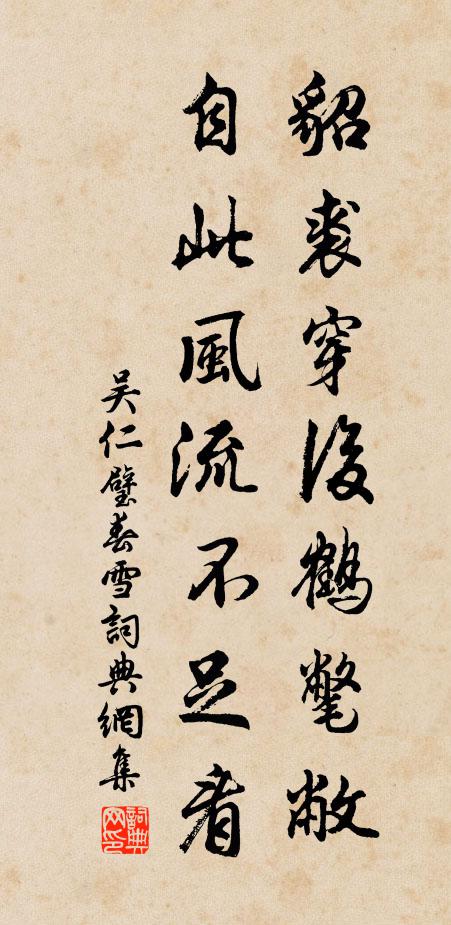 貂裘穿後鶴氅敝
自此風流不足看
吴仁璧春雪詞典網集
詞典
网印